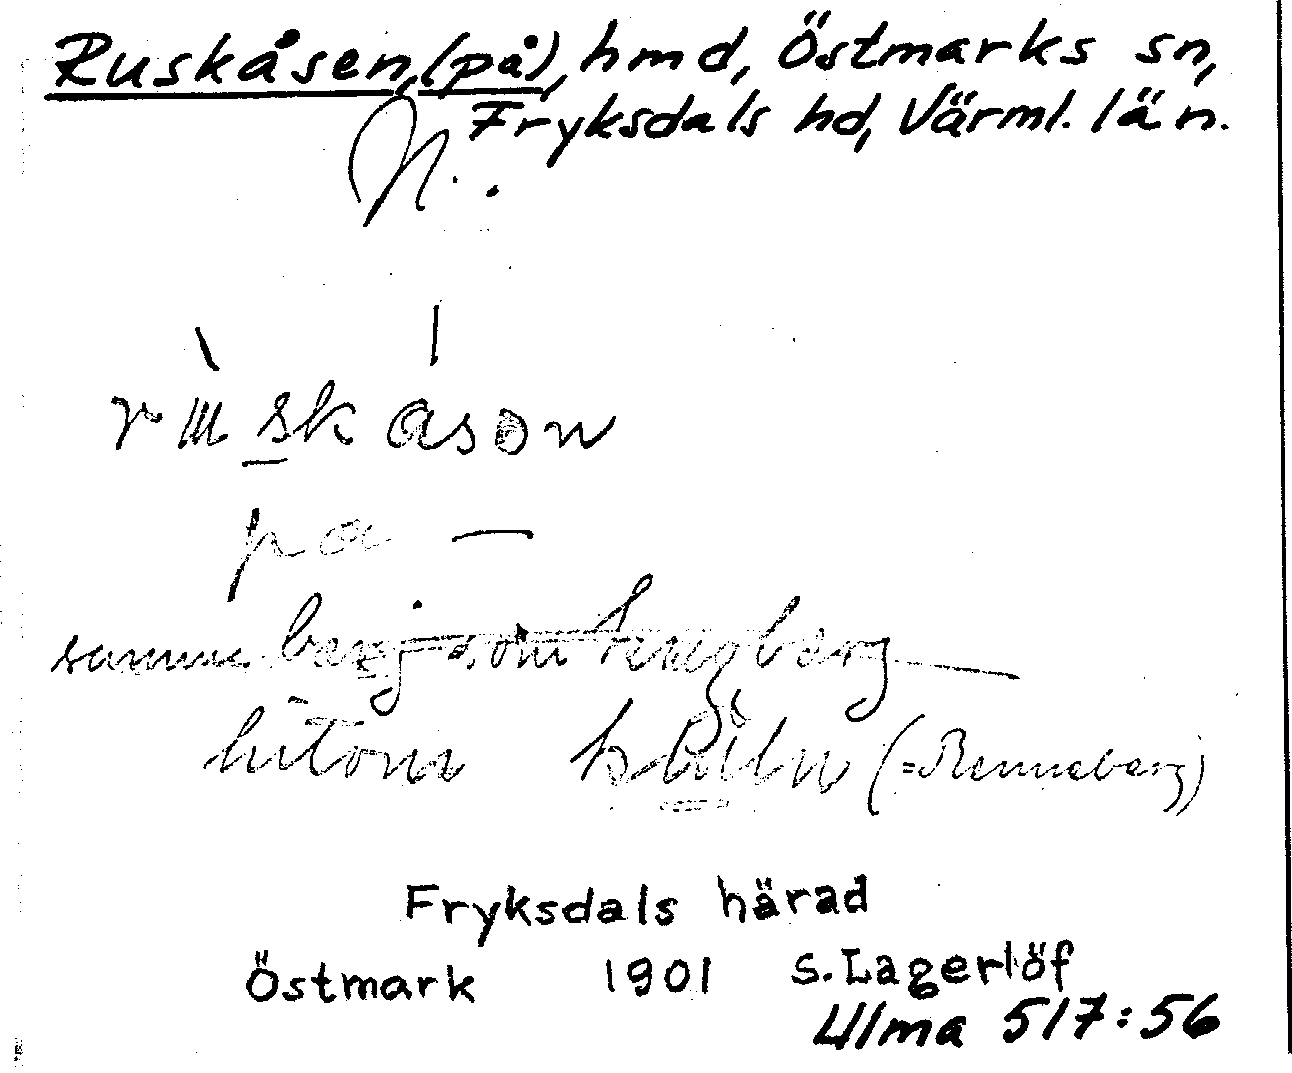 Ruskåsen, (på), hmd, Östmarks sn,
Fryksdals hd, Värml. län.
N.
på —
samma berg som
hitom (=Renneberg)
Fryksdals härad
Östmark 1901 S. Lagerlöf
Ulma 517:56